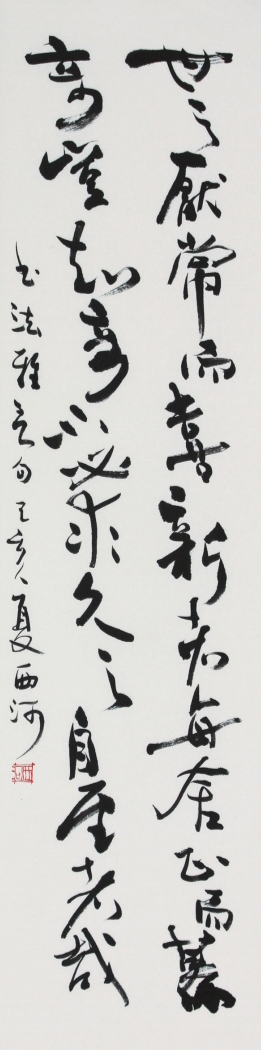 世之厭常而喜新者每舍正而慕
奇豈知奇不必求久之自至者哉
書法雅言句己亥夏西河